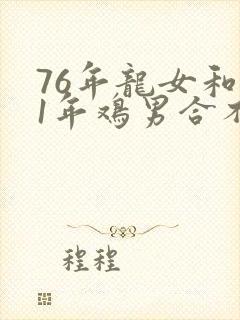 76年龍女和
1年鸡男合不
程程